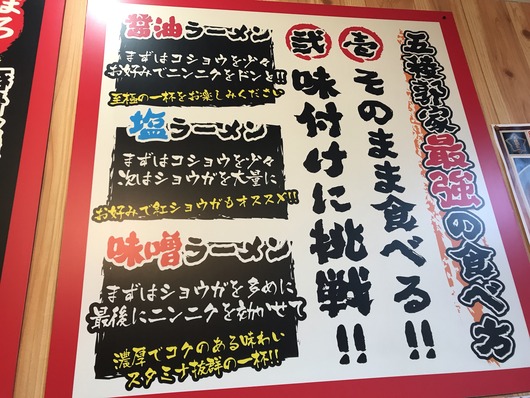 五稜郭家最強の食べ方
壱 そのまま食べる!!
弐 味付けに挑戦!!
醤油ラーメン
まずはコショウを少々
お好みでニンニクをドンと!!
至極の一杯をお楽しみください
塩ラーメン
まずはコショウを少々
次はショウガを大量に
お好みで紅ショウガもオススメ!!
味噌ラーメン
まずはショウガを多めに
最後にニンニクを効かせて
濃厚でコクのある味わい
スタミナ抜群の一杯!!